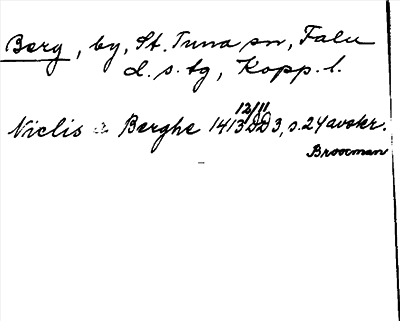 Berg, by, St. Tuna sn, Falu
d. s. tg, Kopp. l.
12/11
Niclis a Berghe 1413 DD 3, s. 24 avskr.
Broocman